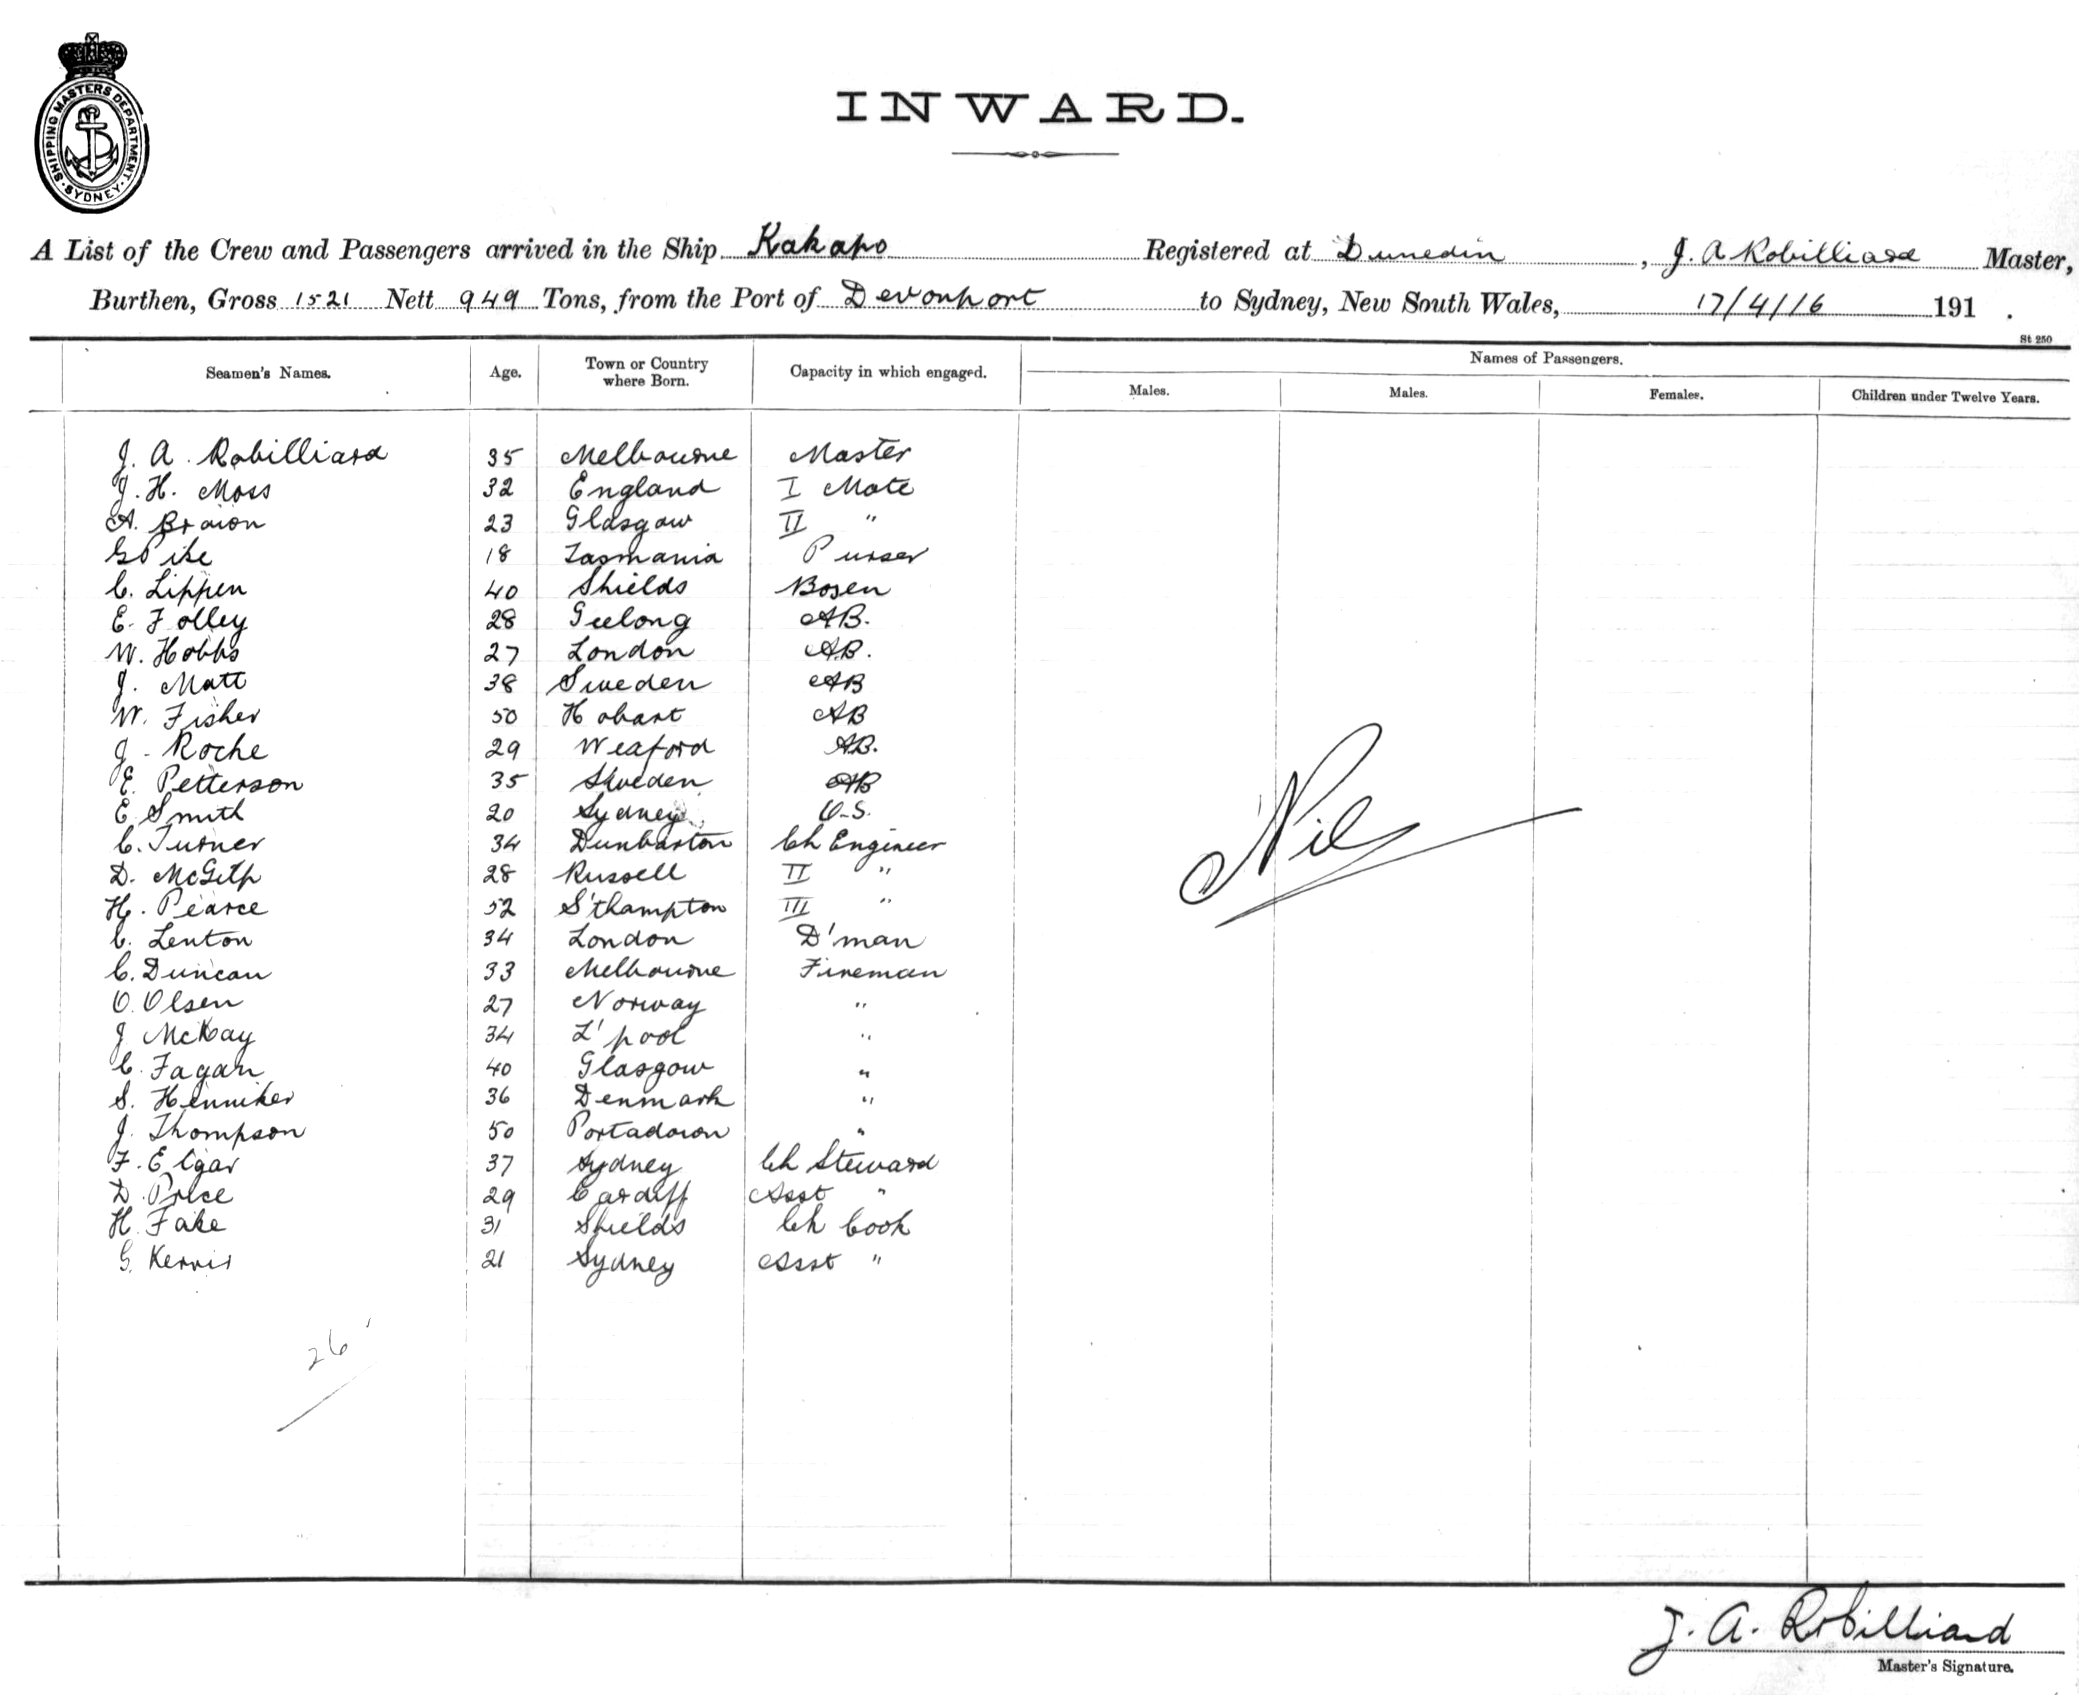 SHIPPING MASTERS DEPARTMENT. SYDNEY
INWARD.
A List of the Crew and Passengers arrived in the Ship Kakapo Registered at Dunedin, J. A Robilliard Master,
Burthen, Gross 1521 Nett 949 Tons, from the Port of Devonport to Sydney, New South Wales, 17/4/16 191 .
St 250
Seamen's Names. Age. Town or Country where Born. Capacity in which engaged. Names of Passengers.
Males. Males. Females. Children under Twelve Years.
J. A. Robilliard 35 Melbourne Master
J. H. Moss 32 England I Mate
A. Brown 23 Glasgow II "
G Pike 18 Tasmania Purser
C. Lippen 40 Shields Bosen
E. Folley 28 Geelong AB.
W. Hobbs 27 London A.B.
J. Matt 38 Sweden AB
W. Fisher 50 Hobart AB
J. Roche 29 Wexford AB.
E. Petterson 35 Sweden AB
E Smith 20 Sydney O.S.
C. Turner 34 Dunbarton Ch Engineer
D. McGilp 28 Russell II "
H. Pearce 52 S'thampton III "
C. Lenton 34 London D'man
C. Duncan 33 Melbourne Fireman
O. Olsen 27 Norway "
J McKay 34 L'pool "
C. Fagan 40 Glasgow "
S. Henniker 36 Denmark "
J. Thompson 50 Portadown "
F. Elgar 37 Sydney Ch Steward
D. Price 29 Cardiff Asst "
H. Fake 31 Shields Ch Cook
G. Kervis 21 Sydney Asst "
Nil
26
J. A. Robilliard
Master's Signature.